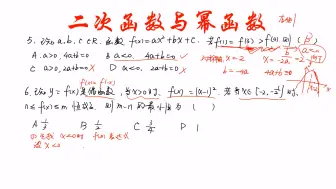 二次函数与幂函数
5、设 a.b.c∈R. 函数 f(x)=ax²+bx+c. 若f(1)=f(3)>f(4) 则 (B)
A a>0, 4a+b=0 B a<0, 4a+b=0 ✓
C a>0, 2a+b=0 X D a<0, 2a+b=0 X
对称轴 x=2
b=-4a
4a+b=0
f(x)=f(-x)
6、已知 y=f(x)是偶函数, 当x>0时, f(x)=(x-1)². 若当x∈[-2,-1/2]时,
n≤f(x)≤m 恒成立. 则 m-n 的最小值为 ( )
A 1/3 B 1/2 C 3/4 D 1
① 先求 x<0时 f(x)表达式
设 x<0